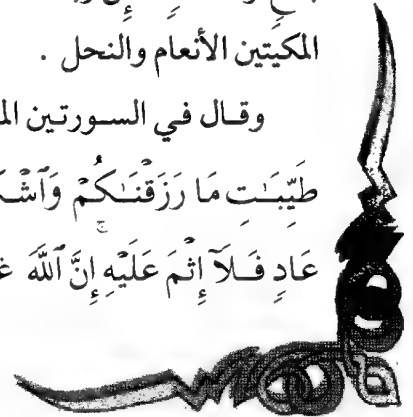 المكيتين الأنعام والنحل .
وقال في السورتين
طَيِّبَـٰتِ مَا رَزَقْنَـٰكُمْ
عَادٍ فَلَآ إِثْمَ عَلَيْهِ إِنَّ ٱللَّهَ